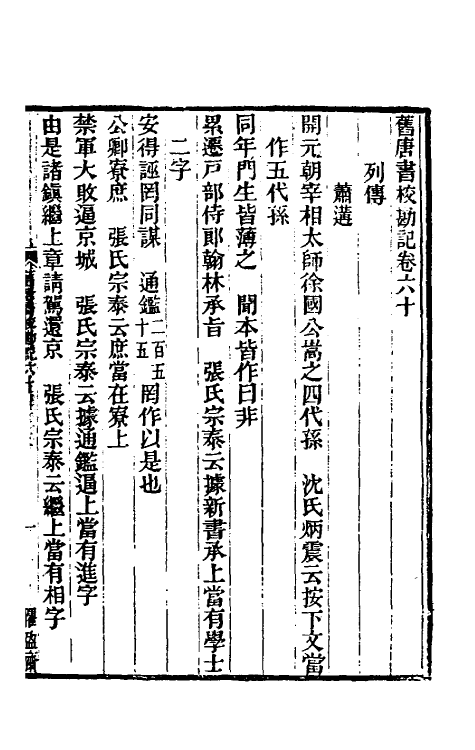 舊唐書校勘記卷六十
列傳
蕭遘
開元朝宰相太師徐國公嵩之四代孫　沈氏炳震云按下文當
作五代孫
同年門生皆薄之　聞本皆作曰非
累遷戶部侍郎翰林承旨　張氏宗泰云據新書承上當有學士
二字
安得誣罔同謀　通鑑二百五十五罔作以是也
公卿寮庶　張氏宗泰云庶當在寮上
禁軍大敗逼京城　張氏宗泰云據通鑑逼上當有進字
由是諸鎮繼上章請駕還京　張氏宗泰云繼上當有相字
懼盈齋